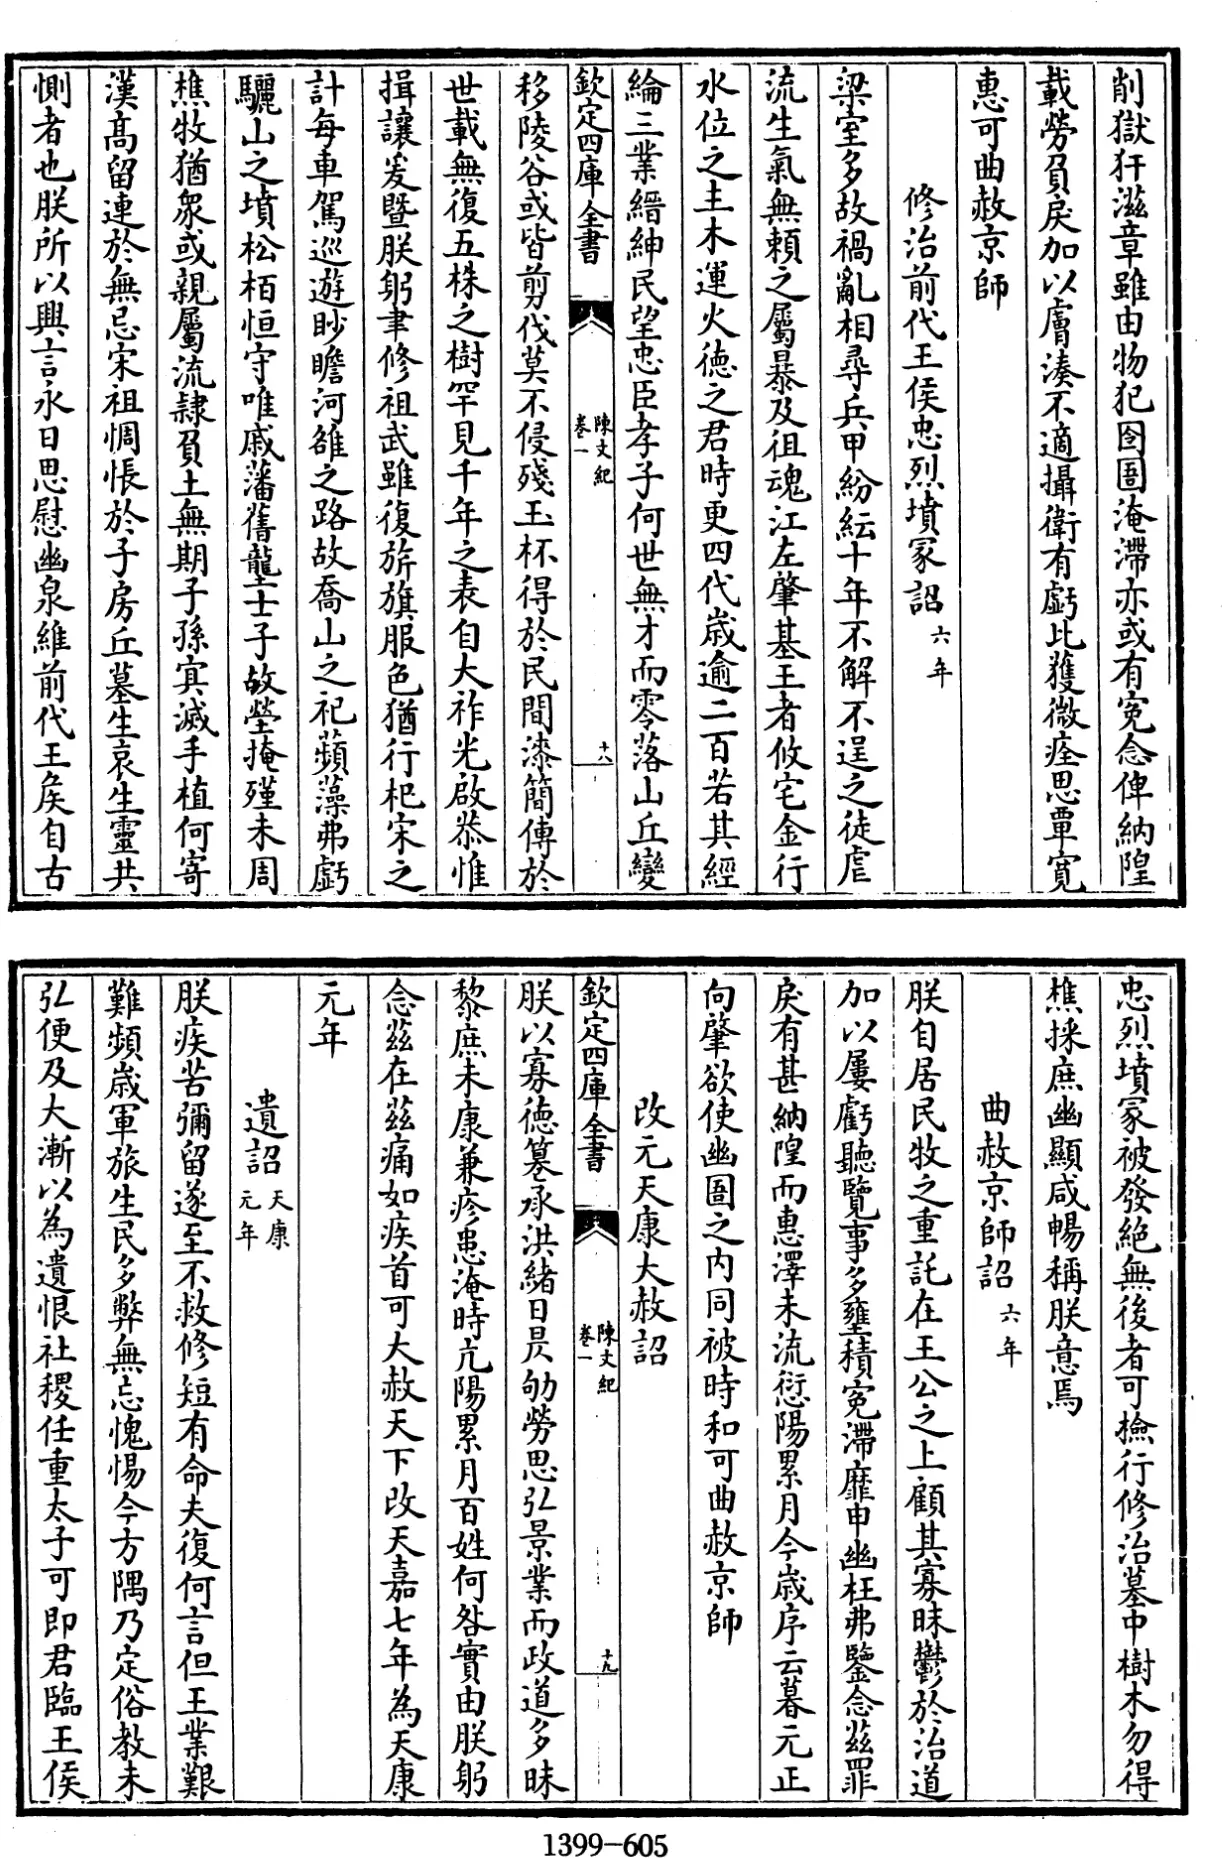 削獄犴滋章雖由物犯囹圄淹滯亦或有寃念俾納隍
載勞負戾加以膚湊不適攝衛有虧比獲微痊思覃寛
惠可曲赦京師
修治前代王侯忠烈墳冢詔六年
梁室多故禍亂相尋兵甲紛紜十年不解不逞之徒虐
流生氣無賴之屬暴及徂魂江左肇基王者攸宅金行
水位之主木運火德之君時更四代歲逾二百若其經
綸三業縉紳民望忠臣孝子何世無才而零落山丘變
移陵谷或皆剪伐莫不侵殘玉杯得於民間漆簡傳於
世載無復五株之樹罕見千年之表自大祚光啟恭惟
揖讓爰暨朕躬聿修祖武雖復旂旗服色猶行杞宋之
計每車駕巡遊眇瞻河雒之路故喬山之祀蘋藻弗虧
驪山之墳松栢恒守唯戚藩舊壟士子故塋掩殣未周
樵牧猶衆或親屬流隸負土無期子孫㝠滅手植何寄
漢髙留連於無忌宋祖惆悵於子房丘墓生哀生靈共
惻者也朕所以興言永日思慰幽泉維前代王矦自古
欽定四庫全書
陳文紀
卷一
十八
忠烈墳冢被發絕無後者可檢行修治墓中樹木勿得
樵採庶幽顯咸暢稱朕意焉
曲赦京師詔六年
朕自居民牧之重託在王公之上顧其寡昧鬱於治道
加以屢虧聽覽事多壅積寃滯靡申幽枉弗鑒念茲罪
戾有甚納隍而惠澤未流愆陽累月今歲序云暮元正
向肇欲使幽圄之内同被時和可曲赦京師
改元天康大赦詔
朕以寡德篡承洪緒日昃劬勞思弘景業而政道多昧
黎庶未康兼疹患淹時亢陽累月百姓何咎實由朕躬
念茲在茲痛如疾首可大赦天下改天嘉七年為天康
元年
遺詔天康元年
朕疾苦彌留遂至不救修短有命夫復何言但王業艱
難頻歲軍旅生民多弊無忘愧惕今方隅乃定俗教未
弘便及大漸以為遺恨社稷任重太子可即君臨王侯
欽定四庫全書
陳文紀
卷一
十九
1399-605